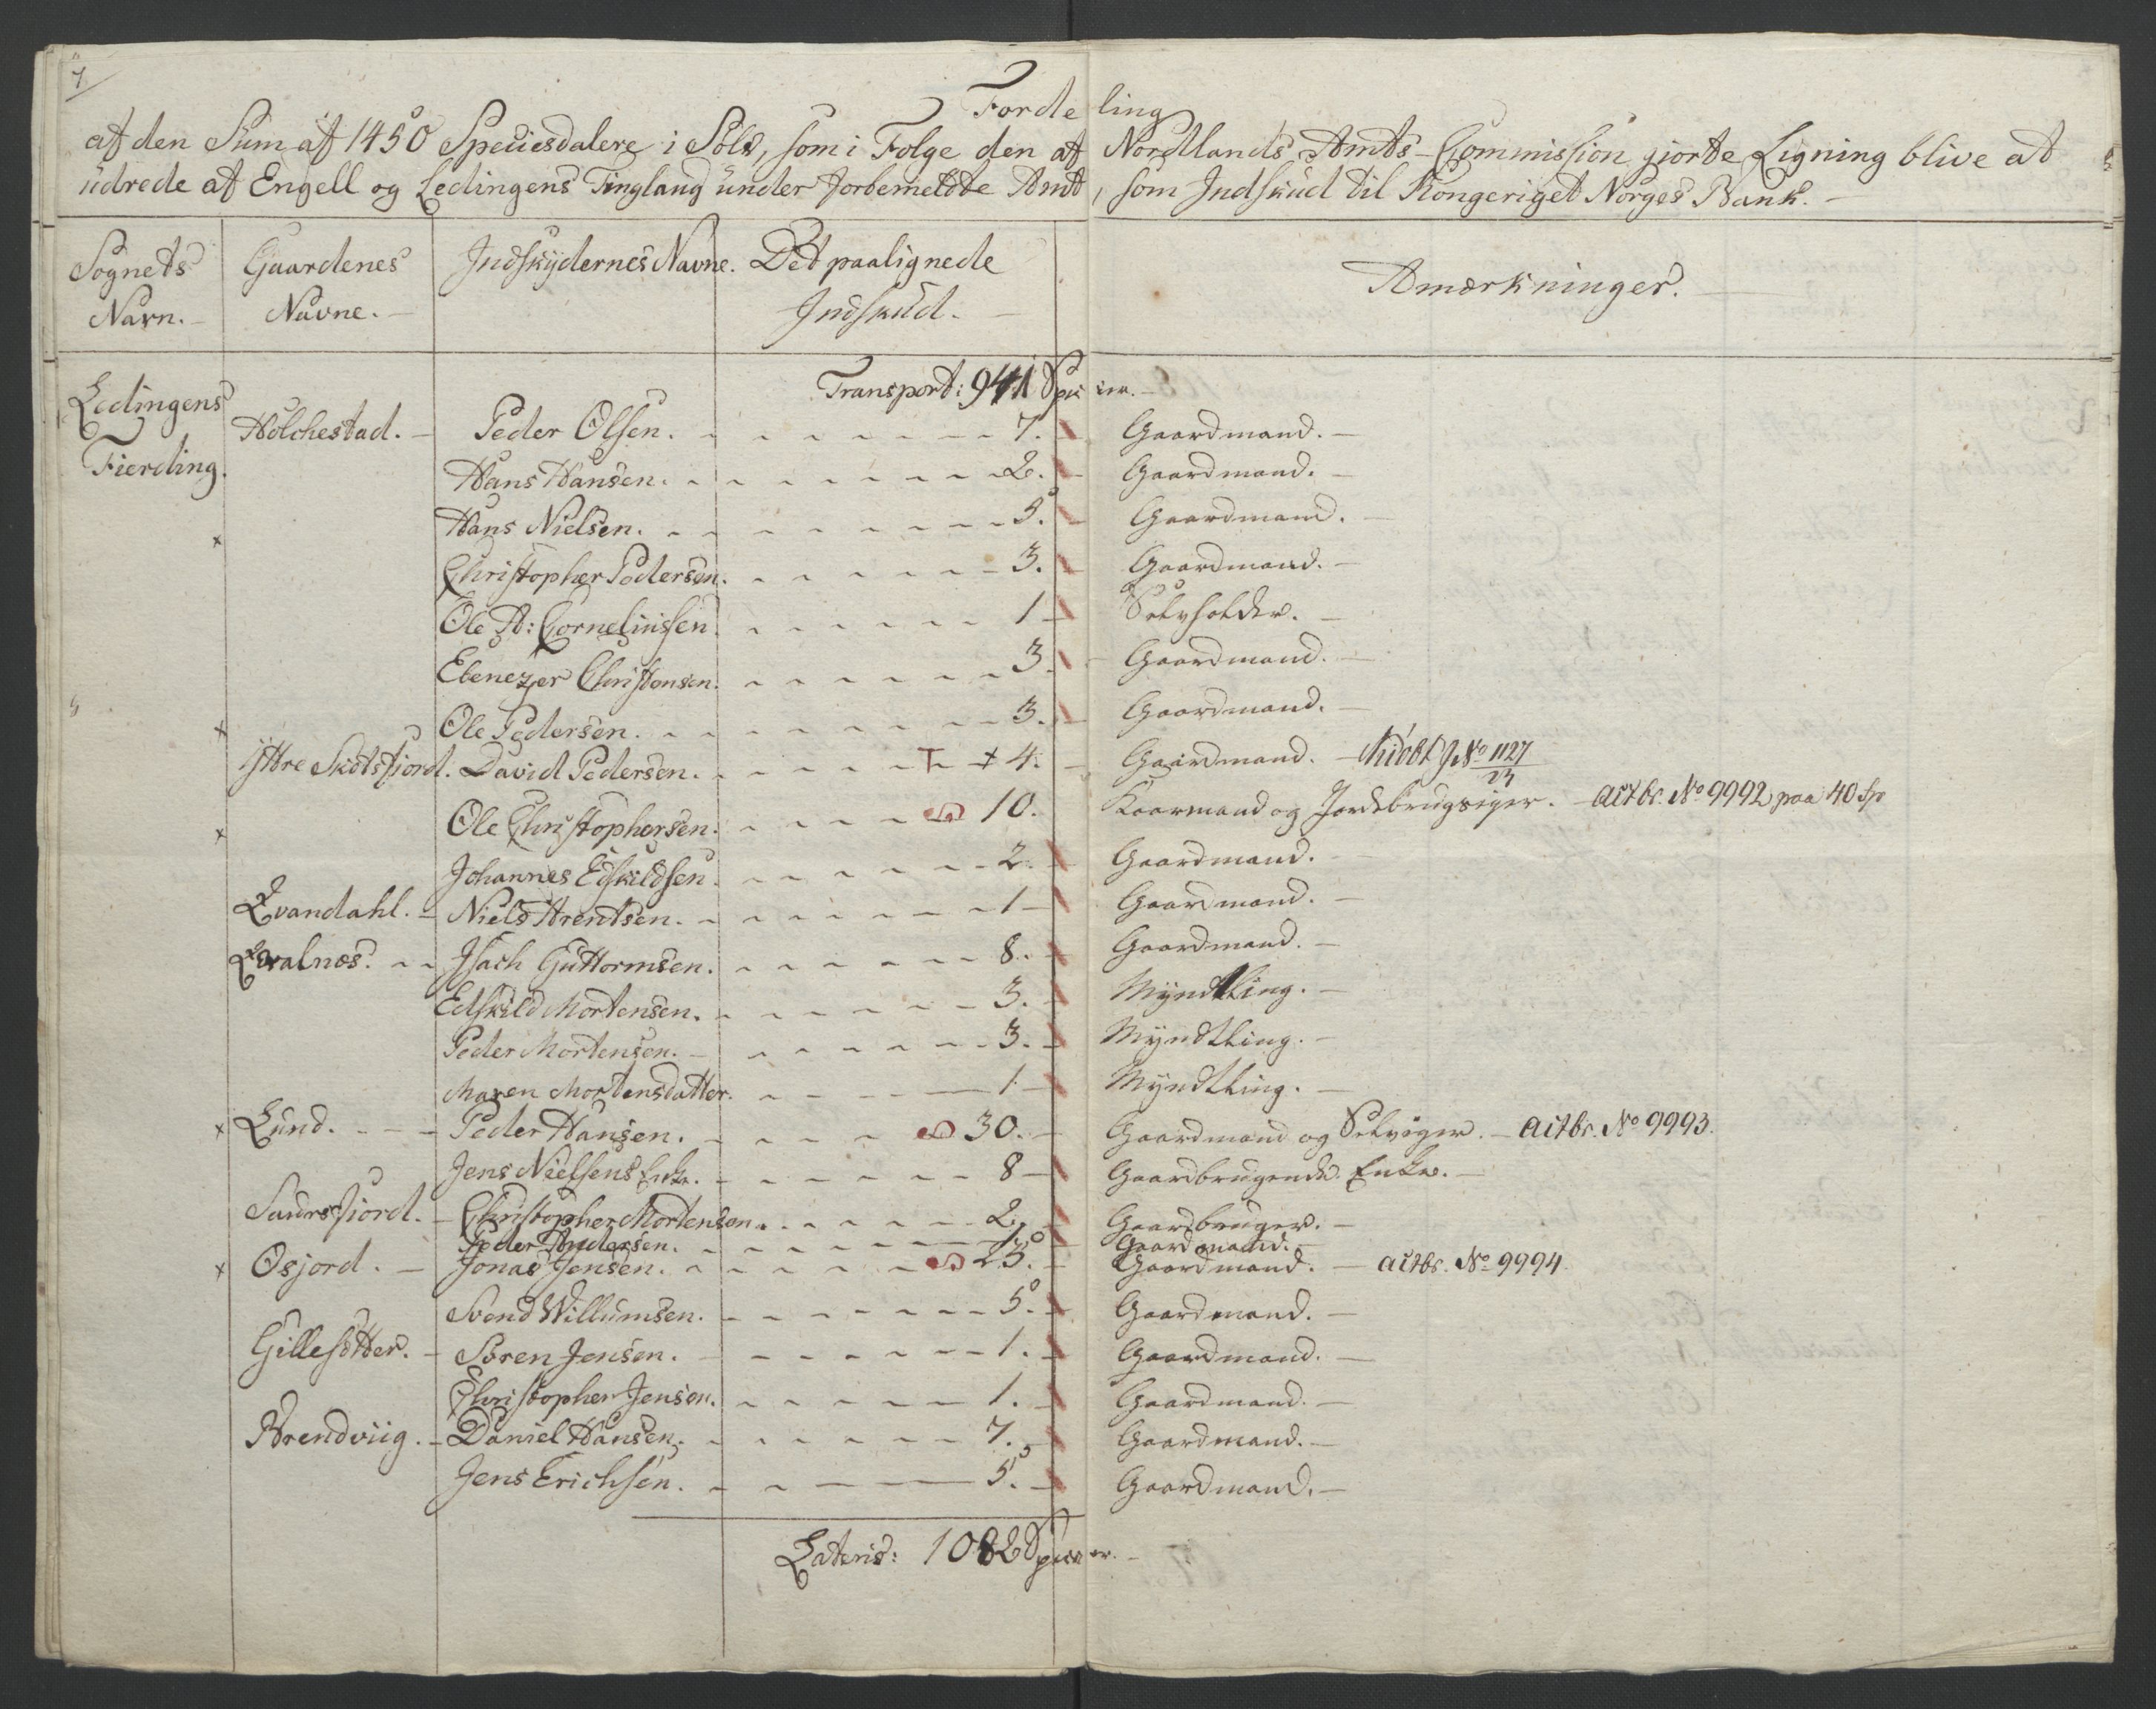 7
Fordeling
af den Sum af 1450 Speciesdalere i Sölv, som i Følge den af Nordlands Amts-Commission gjorte Ligning blive at
üdrede af Engell og Lødingens Tinglaug ünder forbemeldte Amt, som Indskud til Kongeriget Norges Bank.
Sognets Navn. Gaardenes Navne. Indskydernes Navne. Det paalignede Indskud. Anmærkninger.
Transport: 941 Specier.
Lødingens Fierding. Hölchestad. Peder Olsen. 7. Gaardmand.
Hans Hansen. 2. Gaardmand.
Hans Nielsen. 5. Gaardmand.
x Christopher Pedersen. 3. Gaardmand.
Ole A: Corneliussen. 1 Selvholder.
Ebenezer Christensen. 3. Gaardmand.
x Ole Pedersen. 3. Gaardmand.
Ÿttre Skötsfiord. David Pedersen. T x 4. Gaardmand. No 1127
x Ole Christophersen. 10. Kaarmand og Jordebrugseyer. Actbr. No 9992 paa 40 Sp
Johannes Edskildsen. 2. Gaardmand.
Qvandahl. Niels Arentsen. 1 Gaardmand.
Qvalnæs. Isach Guttormsen. 8. Gaardmand.
Edskild Mortensen. 3. Myndtling.
Peder Mortensen. 3. Myndtling.
Maren Mortensdatter. 1 Myndtling.
x Lund. Peder Hansen. 30. Gaardmand og Selveyer. Actbr. No 9993.
Jens Nielsens Enke. 8 Gaardbrugende Enke.
Saursfiord. Christopher Mortensen. 2. Gaardbruger.
Peder Andersen. 1. Gaardmand.
x Osjord. Jonas Jensen. 23. Gaardmand. Actbr. No 9994
Svend Willumsen. 5. Gaardmand.
Gillesötter. Sören Jensen. 1. Gaardmand.
Christopher Jensen. 1. Gaardmand.
Brendviig. Daniel Hansen. 7. Gaardmand.
Jens Erichsen. 5. Gaardmand.
Lateris: 1082 Specier.